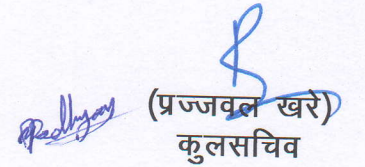 (प्रज्जवल खरे)
कुलसचिव